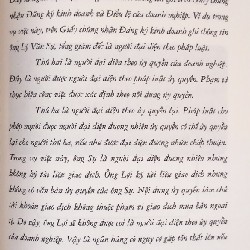 nhận Đăng ký kinh doanh và Điều lệ của doanh nghiệp. Ví dụ trong
vụ việc này, trên Giấy chứng nhận Đăng ký kinh doanh ghi thông tin
ông Lý Văn Sỵ, tổng giám đốc là người đại diện theo pháp luật.
Thứ hai là người đại diện theo ủy quyền của doanh nghiệp.
Đây là người được người đại diện theo pháp luật ủy quyền. Phạm vi
thực hiện công việc được xác định theo nội dung ủy quyền.
Thứ ba là người đại diện theo ủy quyền lại. Pháp luật cho
phép người được người đại diện đương nhiên ủy quyền có thể ủy quyền
lại cho người thứ ba, nếu như được đại diện đương nhiên chấp thuận.
Trong vụ việc này, ông Sỵ là người đại diện đương nhiên nhưng
không ký tài liệu giao dịch. Ông Lợi ký tài liệu giao dịch nhưng
không có văn bản ủy quyền của ông Sỵ. Nội dung ủy quyền
tài khoản giao dịch không thuộc phạm vi giao dịch mua bán ngoại
tệ. Do vậy, ông Lợi sẽ không được coi là người đại diện theo ủy quyền
của doanh nghiệp. Vậy là ngân hàng có nguy cơ gặp tổn thất lớn nếu